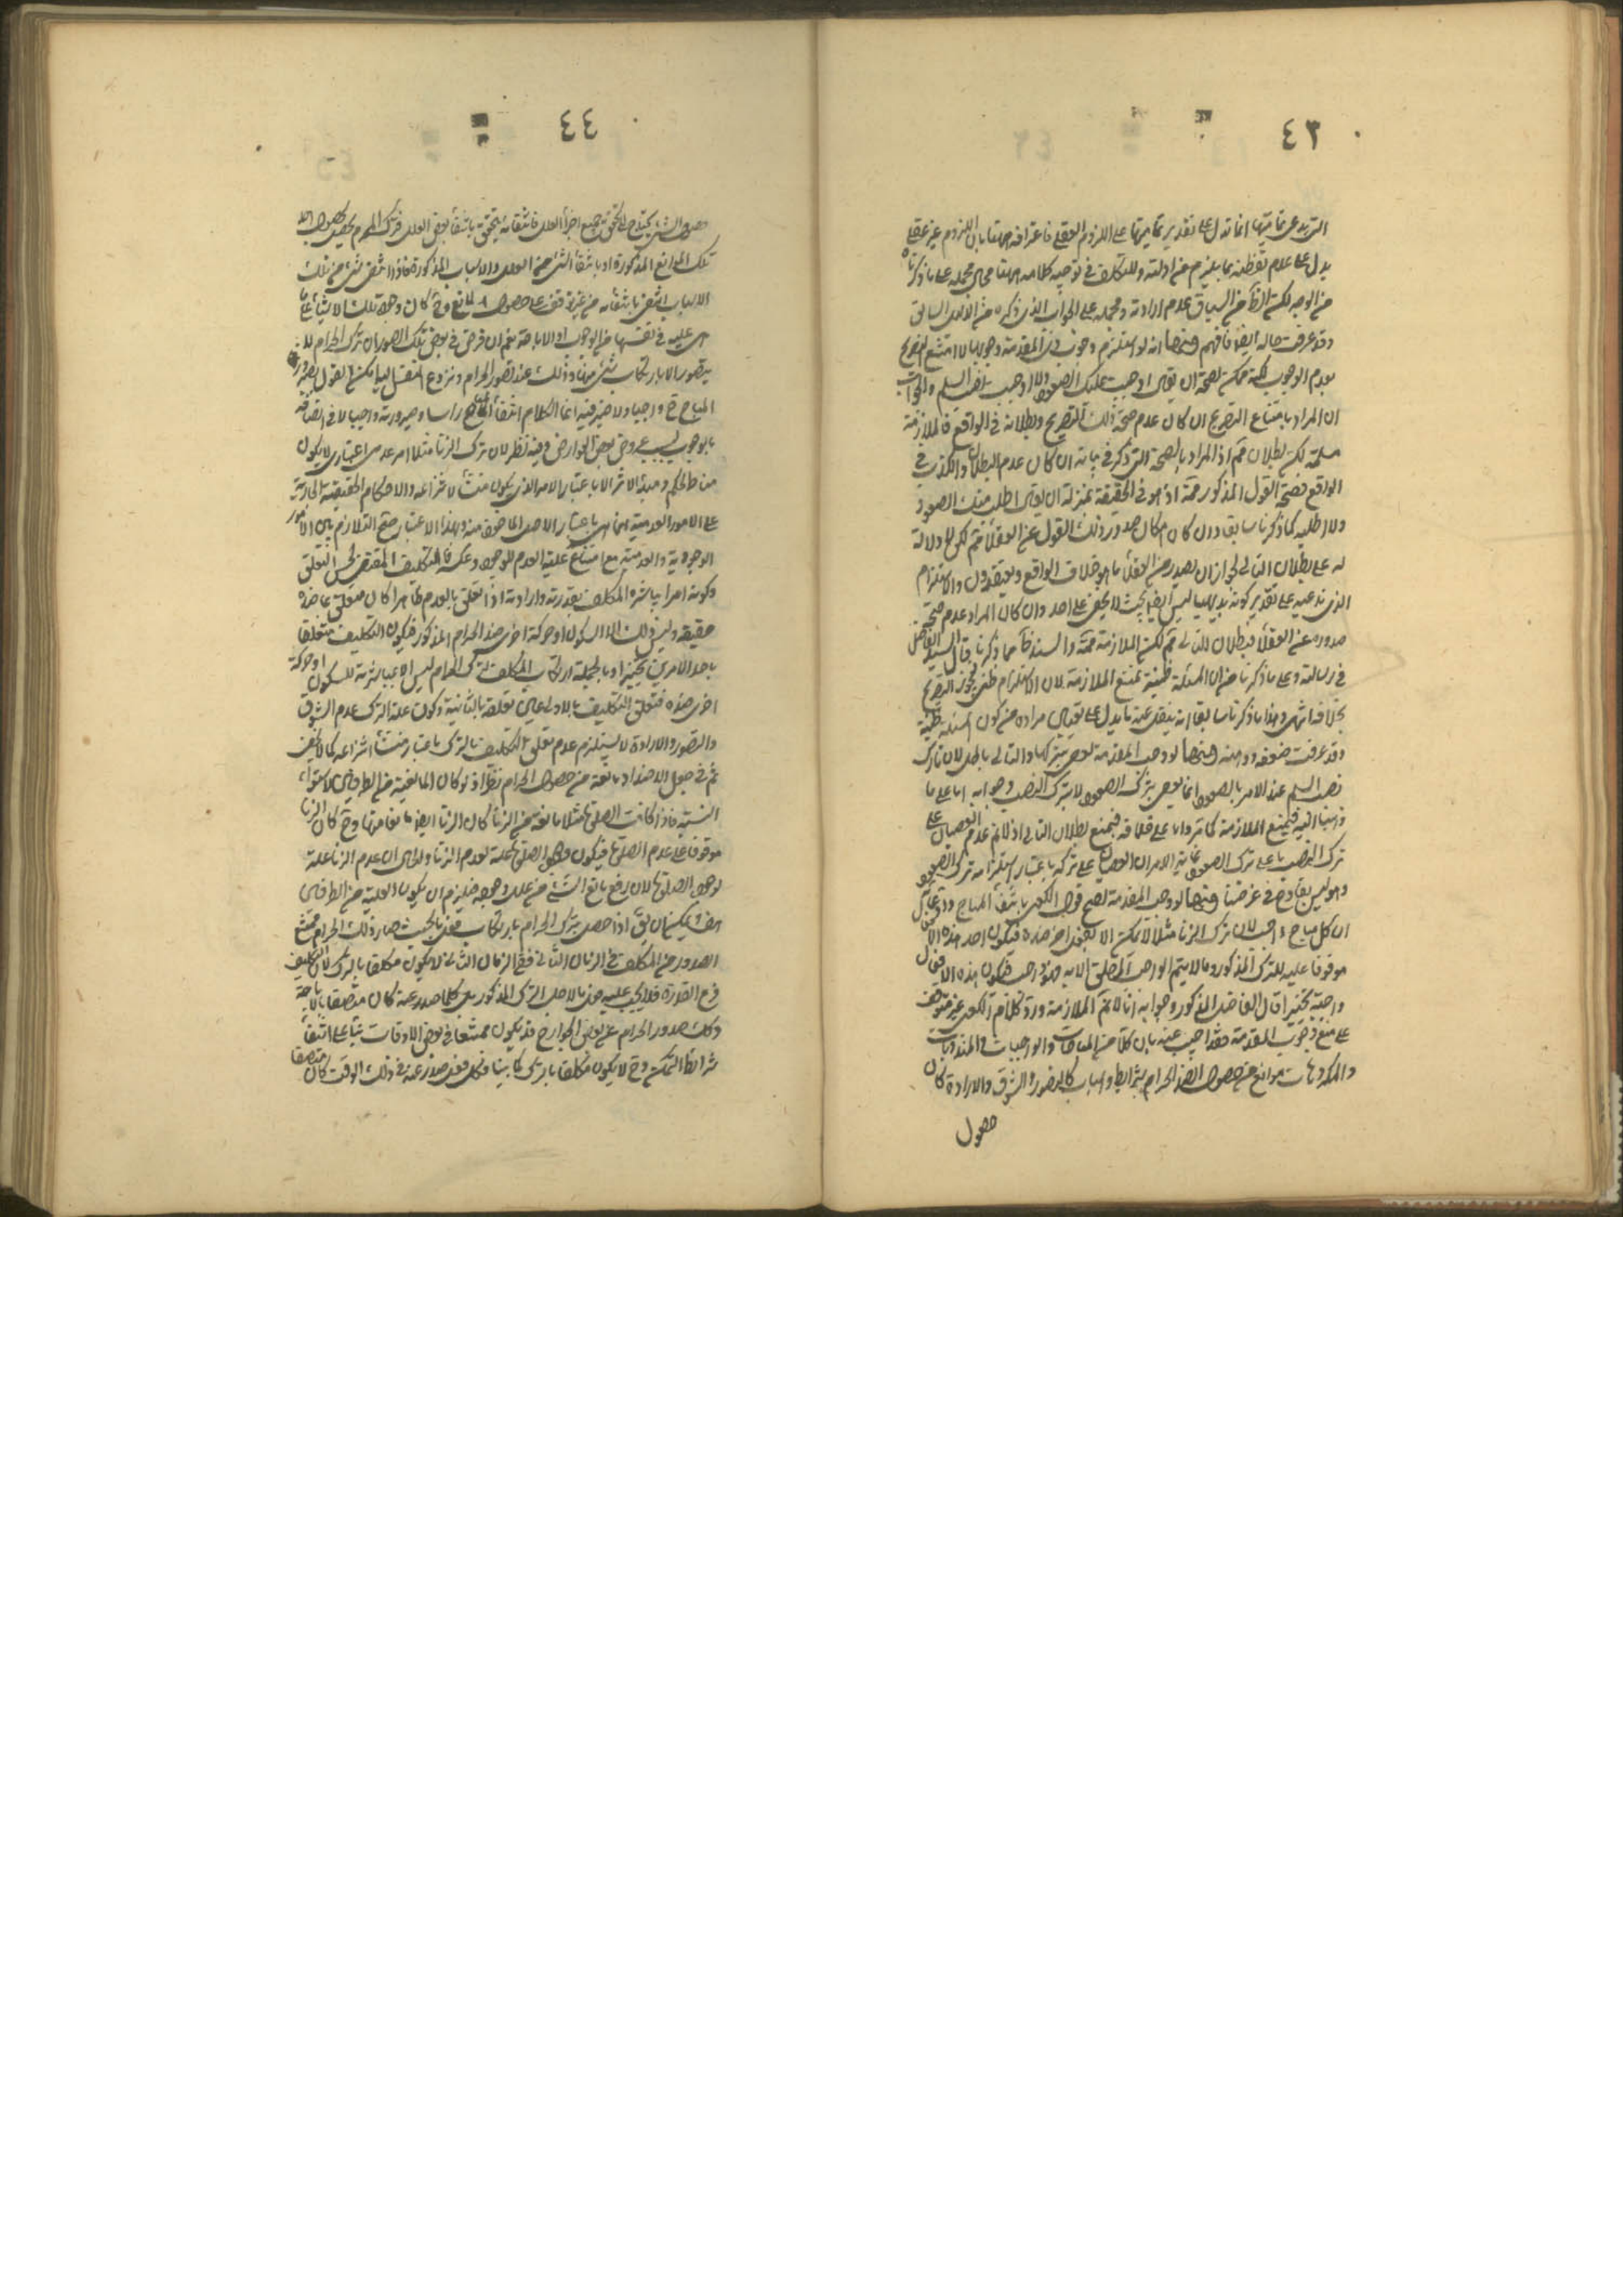 ٤٣
التى يدعى تماميتها انما تدل على تقدير تماميتها على اللزوم العقلى فاعترافه ههنا بان اللزوم غير عقلى
يدل على عدم تفطنه بما يلزم من ادلته وللتكلف فى توجيه كلامه ههنا مجال بحمله على ما ذكرناه
من الوجه لكن الظاهر من السياق عدم ارادته وبحمله على الجواب الذى ذكره من الدليل السابق
وقد عرفت حاله ايضا فافهم ومنها انه لو استلزم وجوب ذى المقدمة وجوبها لامتنع التصريح
بعدم الوجوب لكنه ممكن لصحة ان يقول اوجبت عليك الصعود ولا اوجبت نصب السلم والجواب
ان المراد بامتناع التصريح ان كان عدم صحة ذلك التصريح وبطلانه فى الواقع فالملازمة
مسلمة لكن بطلان مم اذ المراد بالصحة التى ذكر فى بيانه ان كان عدم البطلان والكذب فى
الواقع فصحة القول المذكور ممة اذ هو فى الحقيقة بمنزلة ان يقول اطلب منك الصعود
ولا اطلبه كما ذكرنا سابقا وان كان امكان صدور ذلك القول عن العقلاء فمم لكن لا دلالة
له على بطلان التالى لجواز ان يصدر من العقلاء ما هو خلاف الواقع ويعتقدون والاستلزام
الذى ندعيه على تقدير كونه بديهيا ليس ايضا بحيث لا يخفى على احد وان كان المراد عدم صحة
صدوره عن العقلاء فبطلان التالى مم لكن الملازمة ممة والسند ظاهر مما ذكرنا قال السيد الفاضل
فى رسالته وعلى ما ذكرنا من ان المسئلة ظنية نمنع الملازمة لان الاستلزام ظنى يجوز التصريح
بخلافه انتهى وهذا ما ذكرنا سابقا انه ينقل عنه ما يدل على تعيين مراده من كون المسئلة ظنية
وقد عرفت ضعفه ووهنه ومنها لو وجب المقدمة لعصى بتركها والتالى باطل لان تارك
نصب السلم عند الامر بالصعود انما يعصى بترك الصعود لا بترك النصب وجوابه اما على ما
ذهبنا اليه فبمنع الملازمة كما مر واما على خلافه فبمنع بطلان التالى اذ لا نم عدم العصيان على
ترك النصب بل على ترك الصعود غاية الامر ان العصيان على تركه باعتبار استلزامه ترك الصعود
وهو ليس بقادح فى غرضنا ومنها لو وجب المقدمة لصح قول الكعبى بانتفاء المباح ودعواه
ان كل مباح واجب لان ترك الزنا مثلا لا يمكن الا بفعل اخر ضده فيكون احد هذه الافعال
موقوفا عليه للترك المذكور وما لا يتم الواجب المطلق الا به فهو واجب فيكون هذه الافعال
واجبة تخييرا قال الفاضل المذكور وجوابه انا لا نم الملازمة ورد كلام الكعبى غير متوقف
على منع وجوب المقدمة فقد اجيب عنه بان كلا من المباحات والواجبات والمندوبات
والمكروهات موانع من حصول الضد الحرام بشرايط واسباب كالتصور والشوق والارادة كان
حصول
٤٤
حصول الشئ يحتاج الى تحقق جميع اجزاء العلل فانتفائه يتحقق بانتفاء بعض العلل فترك الحرام يحصل بحصول احد
تلك الموانع المذكورة او بانتفاء الشئ من العلل والاسباب المذكورة فاذا انتفى شئ من تلك
الاسباب انتفى بانتفائه من غير توقف على حصول المانع وح كان وجود تلك الاشياء على ما
هى عليه فى نفسها من الوجوب او الاباحة نعم ان فرض فى بعض تلك الصور ان ترك الحرام لا
يتصور الا بارتكاب شئ منها وذلك عند تصور الحرام ونزوع النفس اليها يمكن القول بصيرورة
المباح ح واجبا ولا ضير فيه انما الكلام انتفاء المباح راسا وصيرورته واجبا لا فى اتصافه
بالوجوب بسبب عروض بعض العوارض وفيه نظر لان ترك الزنا مثلا امر عدمى اعتبارى لا يكون
مناط الحكم ومبدء الاثر الا باعتبار الامر الذى يكون منشأ لانتزاعه والاحكام الحقيقية الجارية
على الامور العدمية انما هى باعتبار الاصل الماخوذ منه وبهذا الاعتبار صح التلازم بين الامور
الوجودية والعدمية مع امتناع علية العدم للوجود وعكسه فالتكليف المقتضى لحسن التعلق
وكونه امرا يباشره المكلف بقدرته وارادته اذا تعلق بالعدم ظاهرا كان متعلق بما ضده
حقيقة وليس ذلك الا السكون او حركة اخرى ضد الحرام المذكور فيكون التكليف متعلقا
باحد الامرين تخييرا وبالجملة ارتكاب المكلف لترك الحرام ليس الا بمباشرته للسكون او حركة
اخرى ضده فتعلق التكليف بالاول عين تعلقه بالثانية وكون علة الترك عدم الشوق
والتصور والارادة لا يستلزم عدم تعلق التكليف بالترك باعتبار منشأ انتزاعه كما لا يخفى
ثم فى جعل الاضداد مانعة من حصول الحرام نظر اذ لو كان المانعية من الطرفين للاستواء
النسبة فاذا كانت الصلوة مثلا مانعة من الزنا كان الزنا ايضا مانعا منها وح كان الزنا
موقوفا على عدم الصلوة فيكون وجود الصلوة علة لعدم الزنا والحال ان عدم الزنا علة
لوجود الصلوة لان رفع مانع الشئ من علل وجوده فيلزم ان يكون العلية من الطرفين
هف ويمكن ان يق اذا حصل ترك الحرام بارتكاب فعل بالحيث صار ذلك الحرام ممتنع
الصدور من المكلف فى الزمان الثانى ففى الزمان الثانى لا يكون مكلفا بالترك لان التكليف
فرع القدرة فلا يجب عليه حينئذ بالاصل الترك المذكور بل كلما صدر عنه كان متصفا بالاباحة
وكك صدور الحرام عن بعض الجوارح قد يكون ممتنعا فى بعض الاوقات بناء على انتفاء
شرائط التمكن وح لا يكون مكلفا بالترك كما بينا فكل فعل صدر عنه فى ذلك الوقت كان متصفا